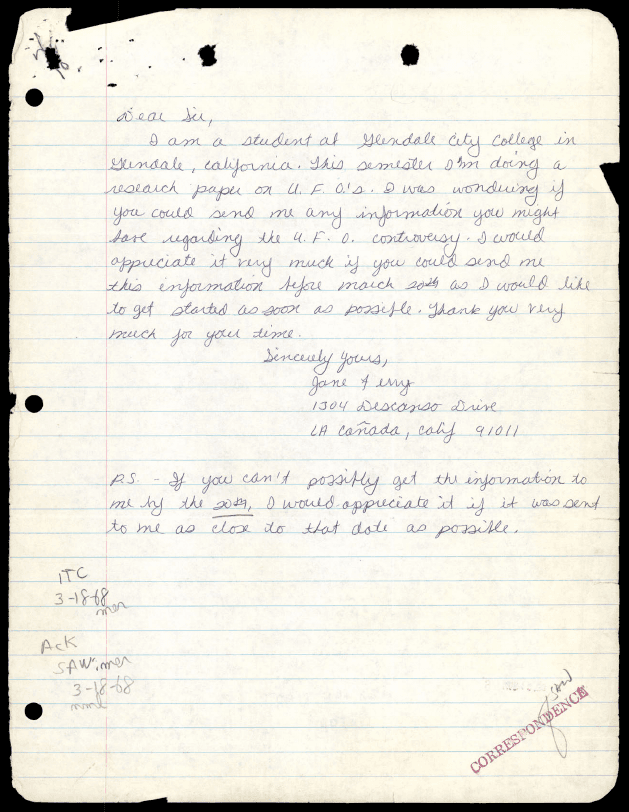 Dear Sir,
I am a student at Glendale City College in
Glendale, California. This semester I'm doing a
research paper on U.F.O.'s. I was wondering if
you could send me any information you might
have regarding the U.F.O. controversy. I would
appreciate it very much if you could send me
this information before march 20th as I would like
to get started as soon as possible. Thank you very
much for your time.
Sincerely yours,
Jane
1304 Descanso Drive
LA Cañada, Calif 91011
P.S. - If you can't possibly get the information to
me by the 20th, I would appreciate it if it was sent
to me as close to that date as possible.
ITC
3-18-68
mer
Ack
SAW:mer
3-18-68
SAW
CORRESPONDENCE